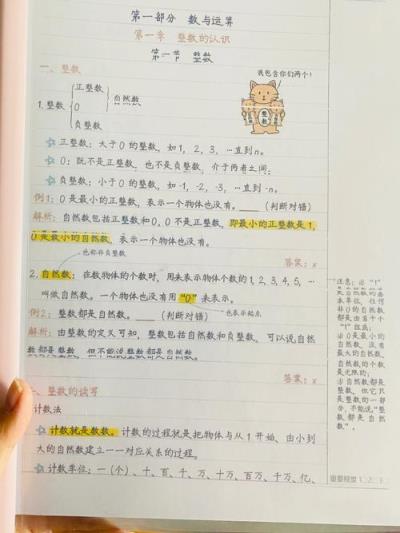 第一部分 数与运算
第一章 整数的认识
第一节 整数
一、整数
我包含你们两个!
正整数
1.整数 0 自然数
负整数
正整数:大于0的整数,如1,2,3,…直到n。
0:既不是正整数,也不是负整数,介于两者之间;
负整数:小于0的整数,如-1,-2,-3,…直到-n。
例1:0是最小的正整数,表示一个物体也没有。____(判断对错)
解析:自然数包括正整数和0,0不是正整数,即最小的正整数是1,
0是最小的自然数,表示一个物体也没有。
也称非负整数
答案:×
2.自然数:在数物体的个数时,用来表示物体个数的1,2,3,4,5,…
叫做自然数。一个物体也没有用“0”来表示。
也表示起点
例2:整数都是自然数。____(判断对错)
解析:由整数的定义可知,整数包括自然数和负整数,可以说自然
数都是整数,但不能说整数都是自然数。
答案:×
二、整数的读写
计数法
计数就是数数。计数的过程就是把物体与从1开始、由小到
大的自然数建立一一对应关系的过程。
计数单位:一(个)、十、百、千、万、十万、百万、千万、亿、
注意:①“1”
是自然数的基
本单位,任何
非0的自然数
都是由若干个
“1”组成;
②0是最小的
自然数,没有
最大的自然数,
自然数的个数
是无限的;
③自然数都是
整数,但它只
是整数的一部
分,不能说“整
数都是自然
数”。